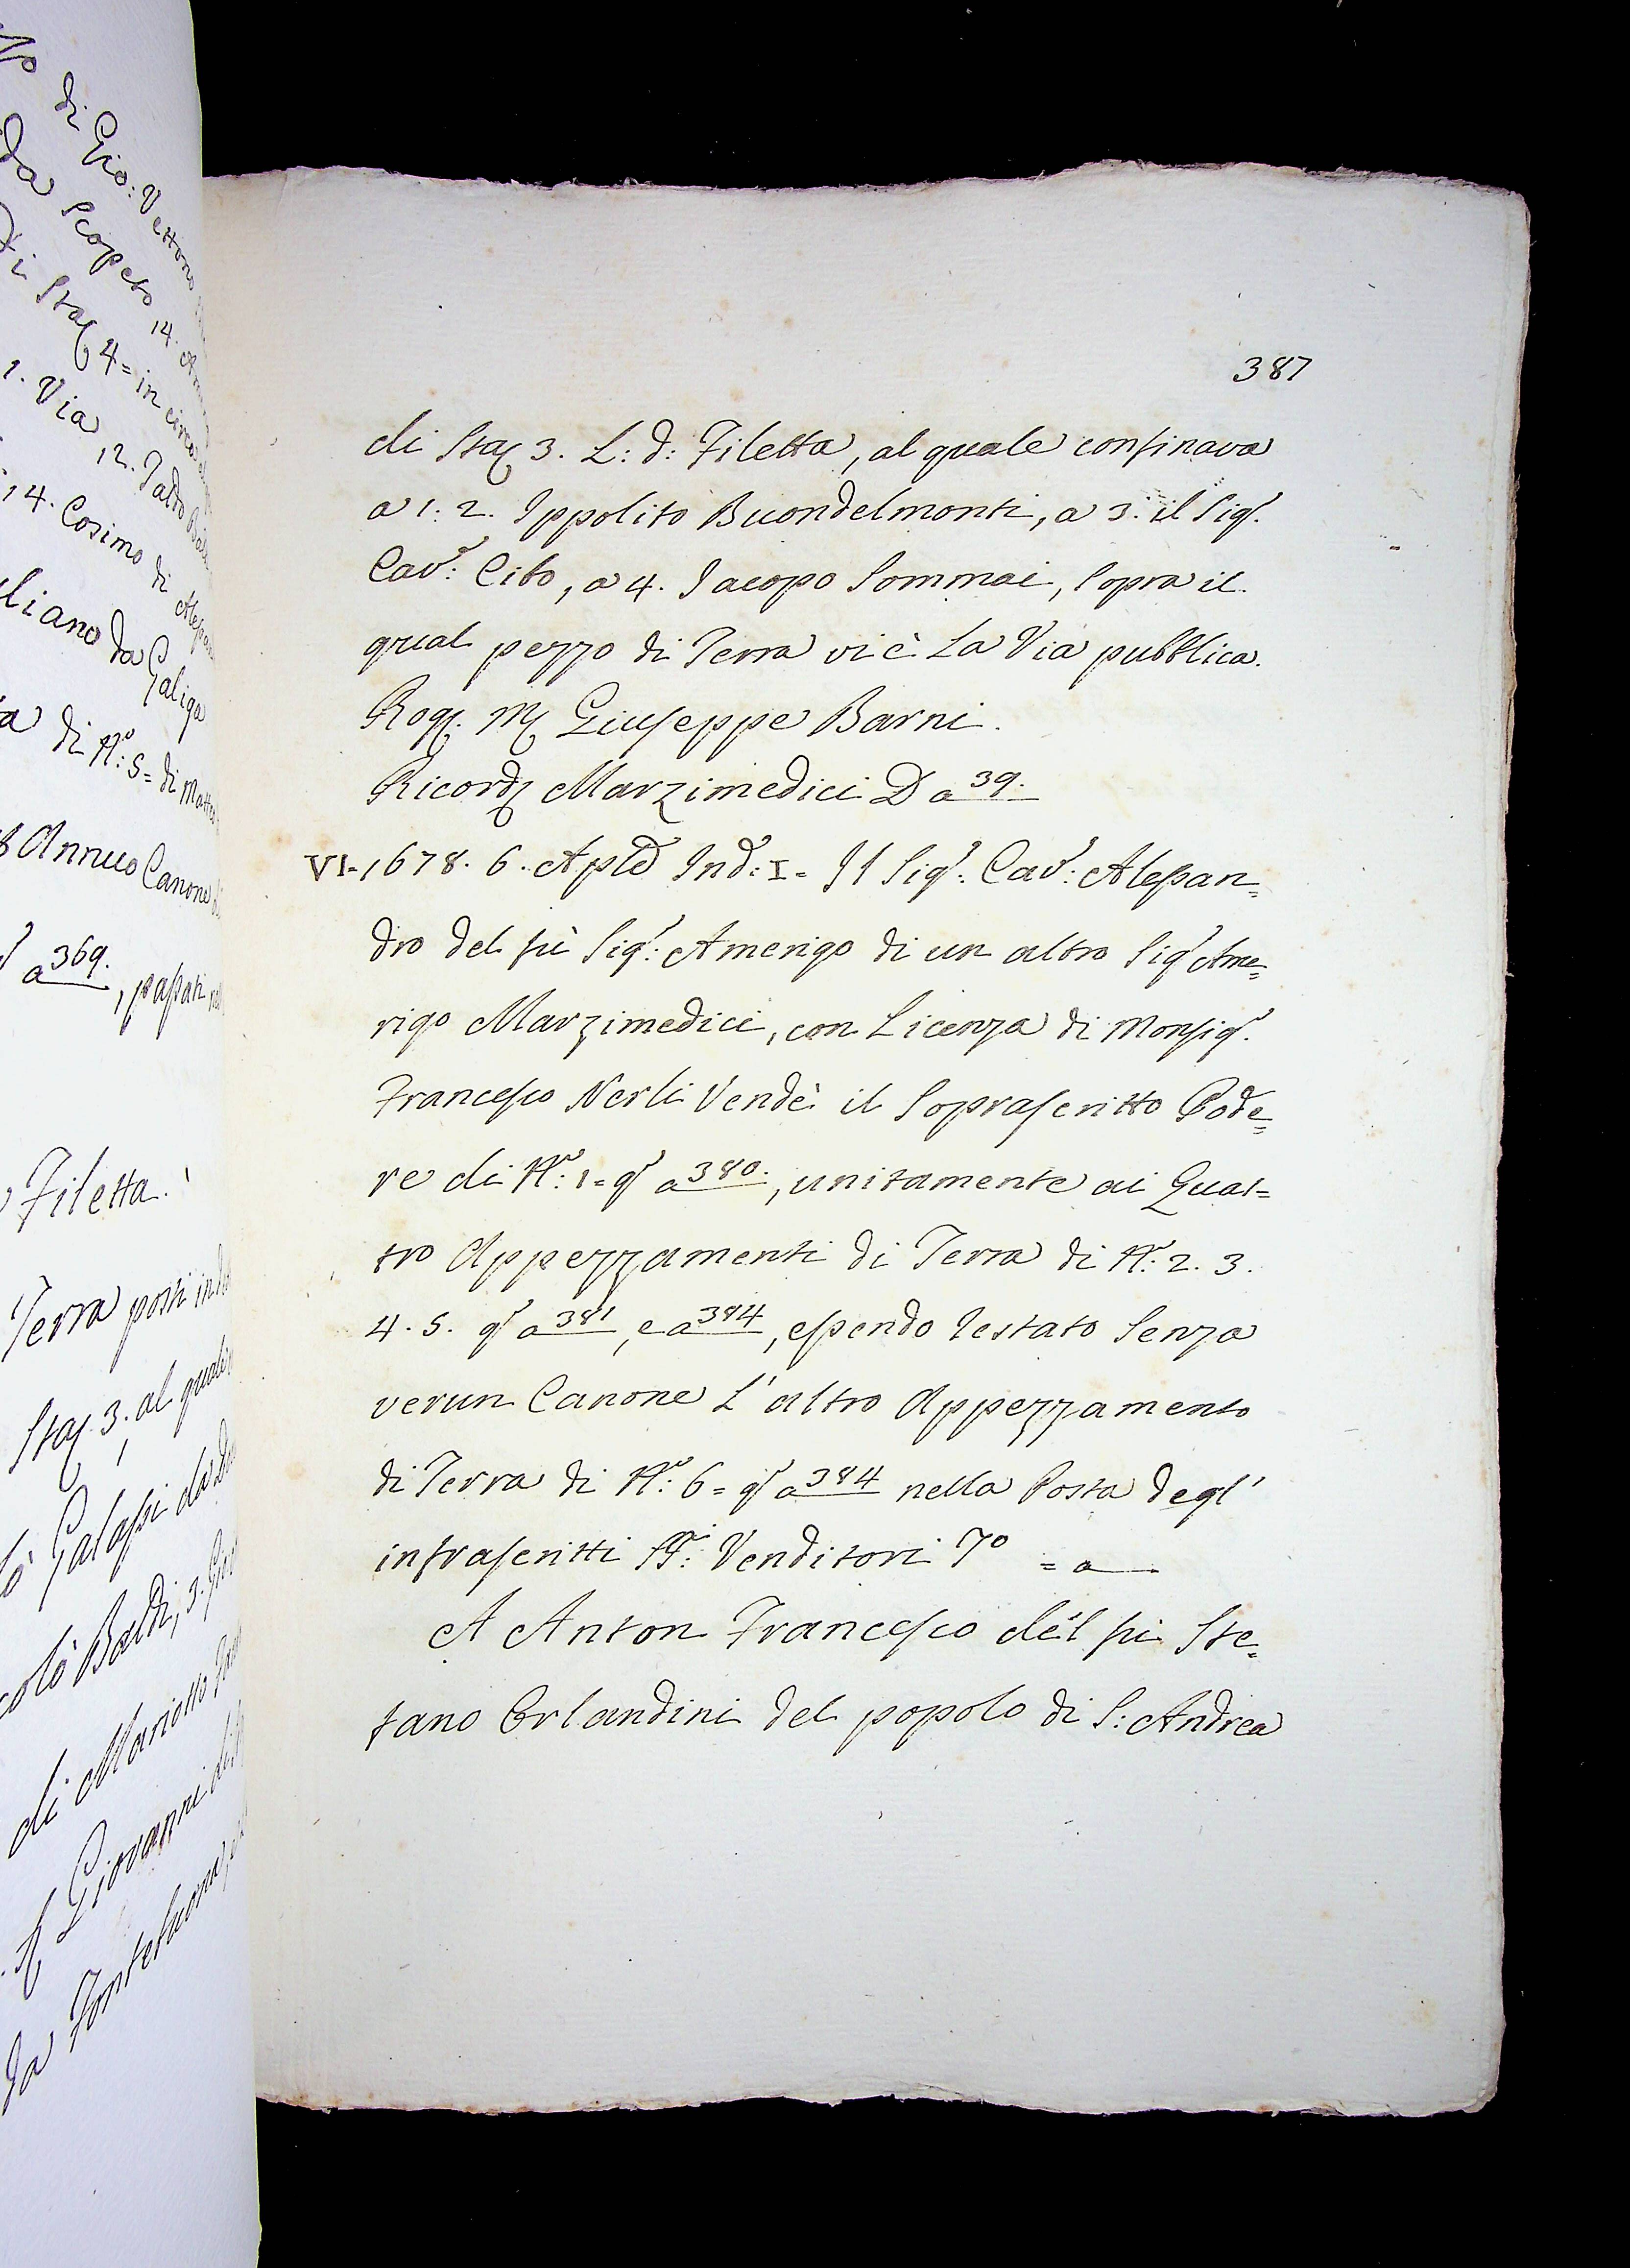 387
di Sta 3. L: d: Filetta, al quale confinava
a 1: 2. Ippolito Buondelmonti, a 3. il Sig.
Cav: Cibo, a 4. Jacopo Sommai, sopra il
qual pezzo di Terra vi è La Via pubblica.
Rog. M Giuseppe Barni.
Ricord Marzimedici D a 39.
VI=1678. 6. Aple Ind: I= Il Sig: Cav: Alessan=
dro del fù Sig: Amerigo di un altro Sig Ame=
rigo Marzimedici, con Licenza di Monsig.
Francesco Nerli Vendè il Soprascritto Pode=
re di N: 1= q a 380., unitamente ai Quat=
tro Appezzamenti di Terra di N: 2. 3.
4. 5. q a 381, e a 384, essendo restato Senza
verun Canone L'altro Appezzamento
di Terra di N: 6= q a 384 nella Posta degl'
infrascritti SS: Venditori 7o = a
A Anton Francesco del fù Ste=
fano Orlandini del popolo di S: Andrea
di Gio: Vettorio
da Scopeto 14.
di Sta 4= in circa
1. Via, 12.
14. Cosimo di
da Galiga
di N: 5= di Matteo
Annuo Canone
a 369., passati
Filetta.
Terra posti in
Sta 3. al quale
Galassi da
Baldi, 3.
di Mariotto
Giovanni
da